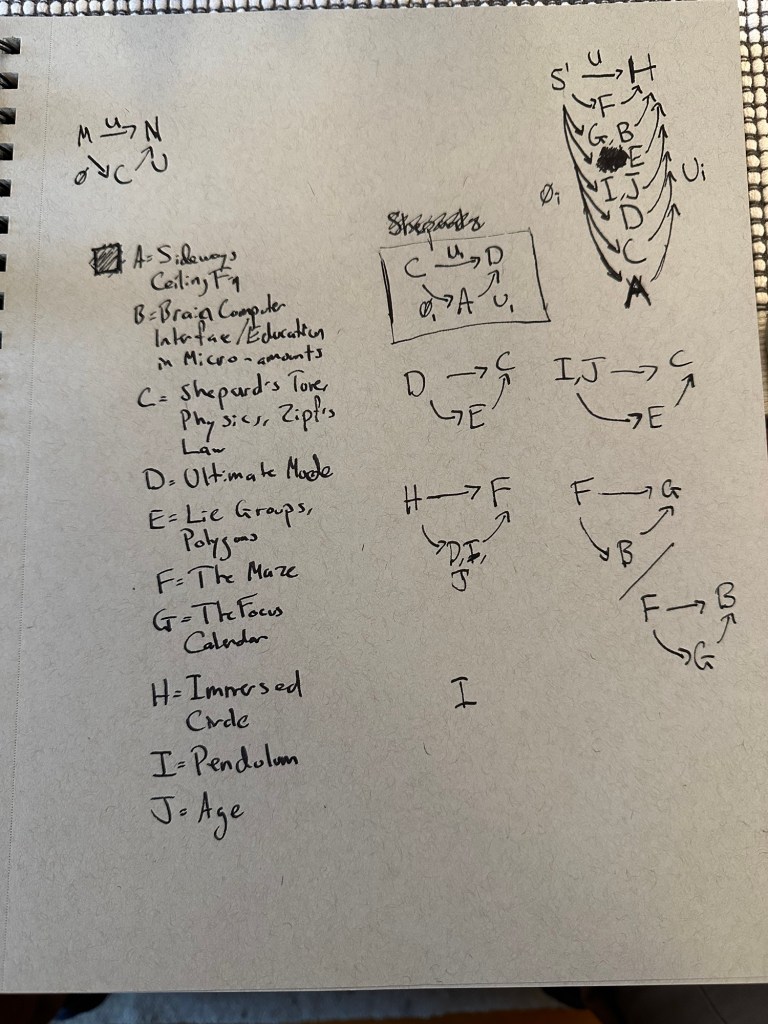 S' u H
F
G, B
E
I, J
D
C
A
øᵢ Uᵢ
M u N
ø C U
A= Sideways
Ceiling Fan
B= Brain Computer
Interface/Education
in Micro-amounts
C= Shepard's Tone,
Physics, Zipf's
Law
D= Ultimate Mode
E= Lie Groups,
Polygons
F= The Maze
G= The Focus
Calendar
H= Immersed
Circle
I= Pendulum
J= Age
C u₁ D
ø₁ A U₁
D C
E
I, J C
E
H F
D, I,
J
F G
B
F B
G
I